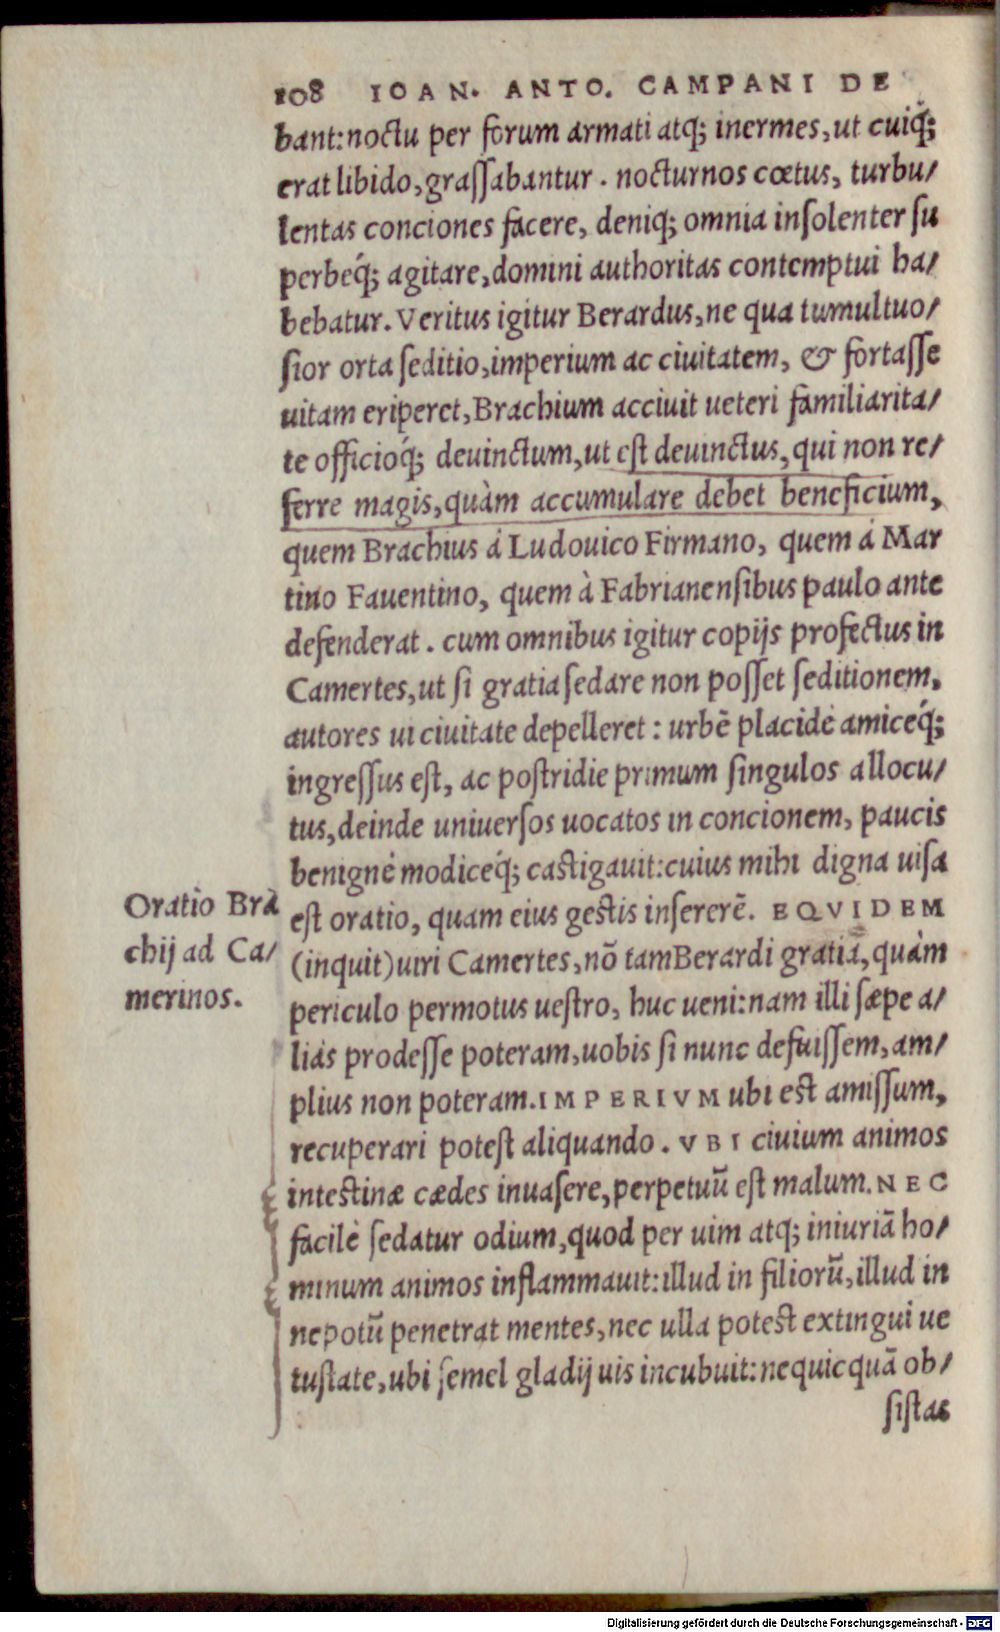 108 IOAN. ANTO. CAMPANI DE
bant: noctu per forum armati atq; inermes, ut cuiq́;
erat libido, grassabantur. nocturnos cœtus, turbu/
lentas conciones facere, deniq; omnia insolenter su
perbeq́; agitare, domini authoritas contemptui ha/
bebatur. Veritus igitur Berardus, ne qua tumultuo/
sior orta seditio, imperium ac ciuitatem, & fortasse
uitam eriperet, Brachium acciuit ueteri familiarita/
te officioq́; deuinctum, ut est deuinctus, qui non re/
ferre magis, quàm accumulare debet beneficium,
quem Brachius á Ludouico Firmano, quem á Mar
tino Fauentino, quem à Fabrianensibus paulo ante
defenderat. cum omnibus igitur copijs profectus in
Camertes, ut si gratia sedare non posset seditionem,
autores ui ciuitate depelleret: urbē placidè amiceq́;
ingressus est, ac postridie primum singulos allocu/
tus, deinde uniuersos uocatos in concionem, paucis
benignè modiceq́; castigauit: cuius mihi digna uisa
est oratio, quam eius gestis insererē. EQVIDEM
Oratio Brà
chij ad Ca/
merinos.
(inquit) uiri Camertes, nō tam Berardi gratia, quàm
periculo permotus uestro, huc ueni: nam illi sæpe a/
liàs prodesse poteram, uobis si nunc defuissem, am/
plius non poteram. IMPERIVM ubi est amissum,
recuperari potest aliquando. VBI ciuium animos
intestinæ cædes inuasere, perpetuū est malum. NEC
facilè sedatur odium, quod per uim atq; iniuriā ho/
minum animos inflammauit: illud in filiorū, illud in
nepotū penetrat mentes, nec ulla potest extingui ue
tustate, ubi semel gladij uis incubuit: nequicquā ob/
sistas
Digitalisierung gefördert durch die Deutsche Forschungsgemeinschaft - DFG